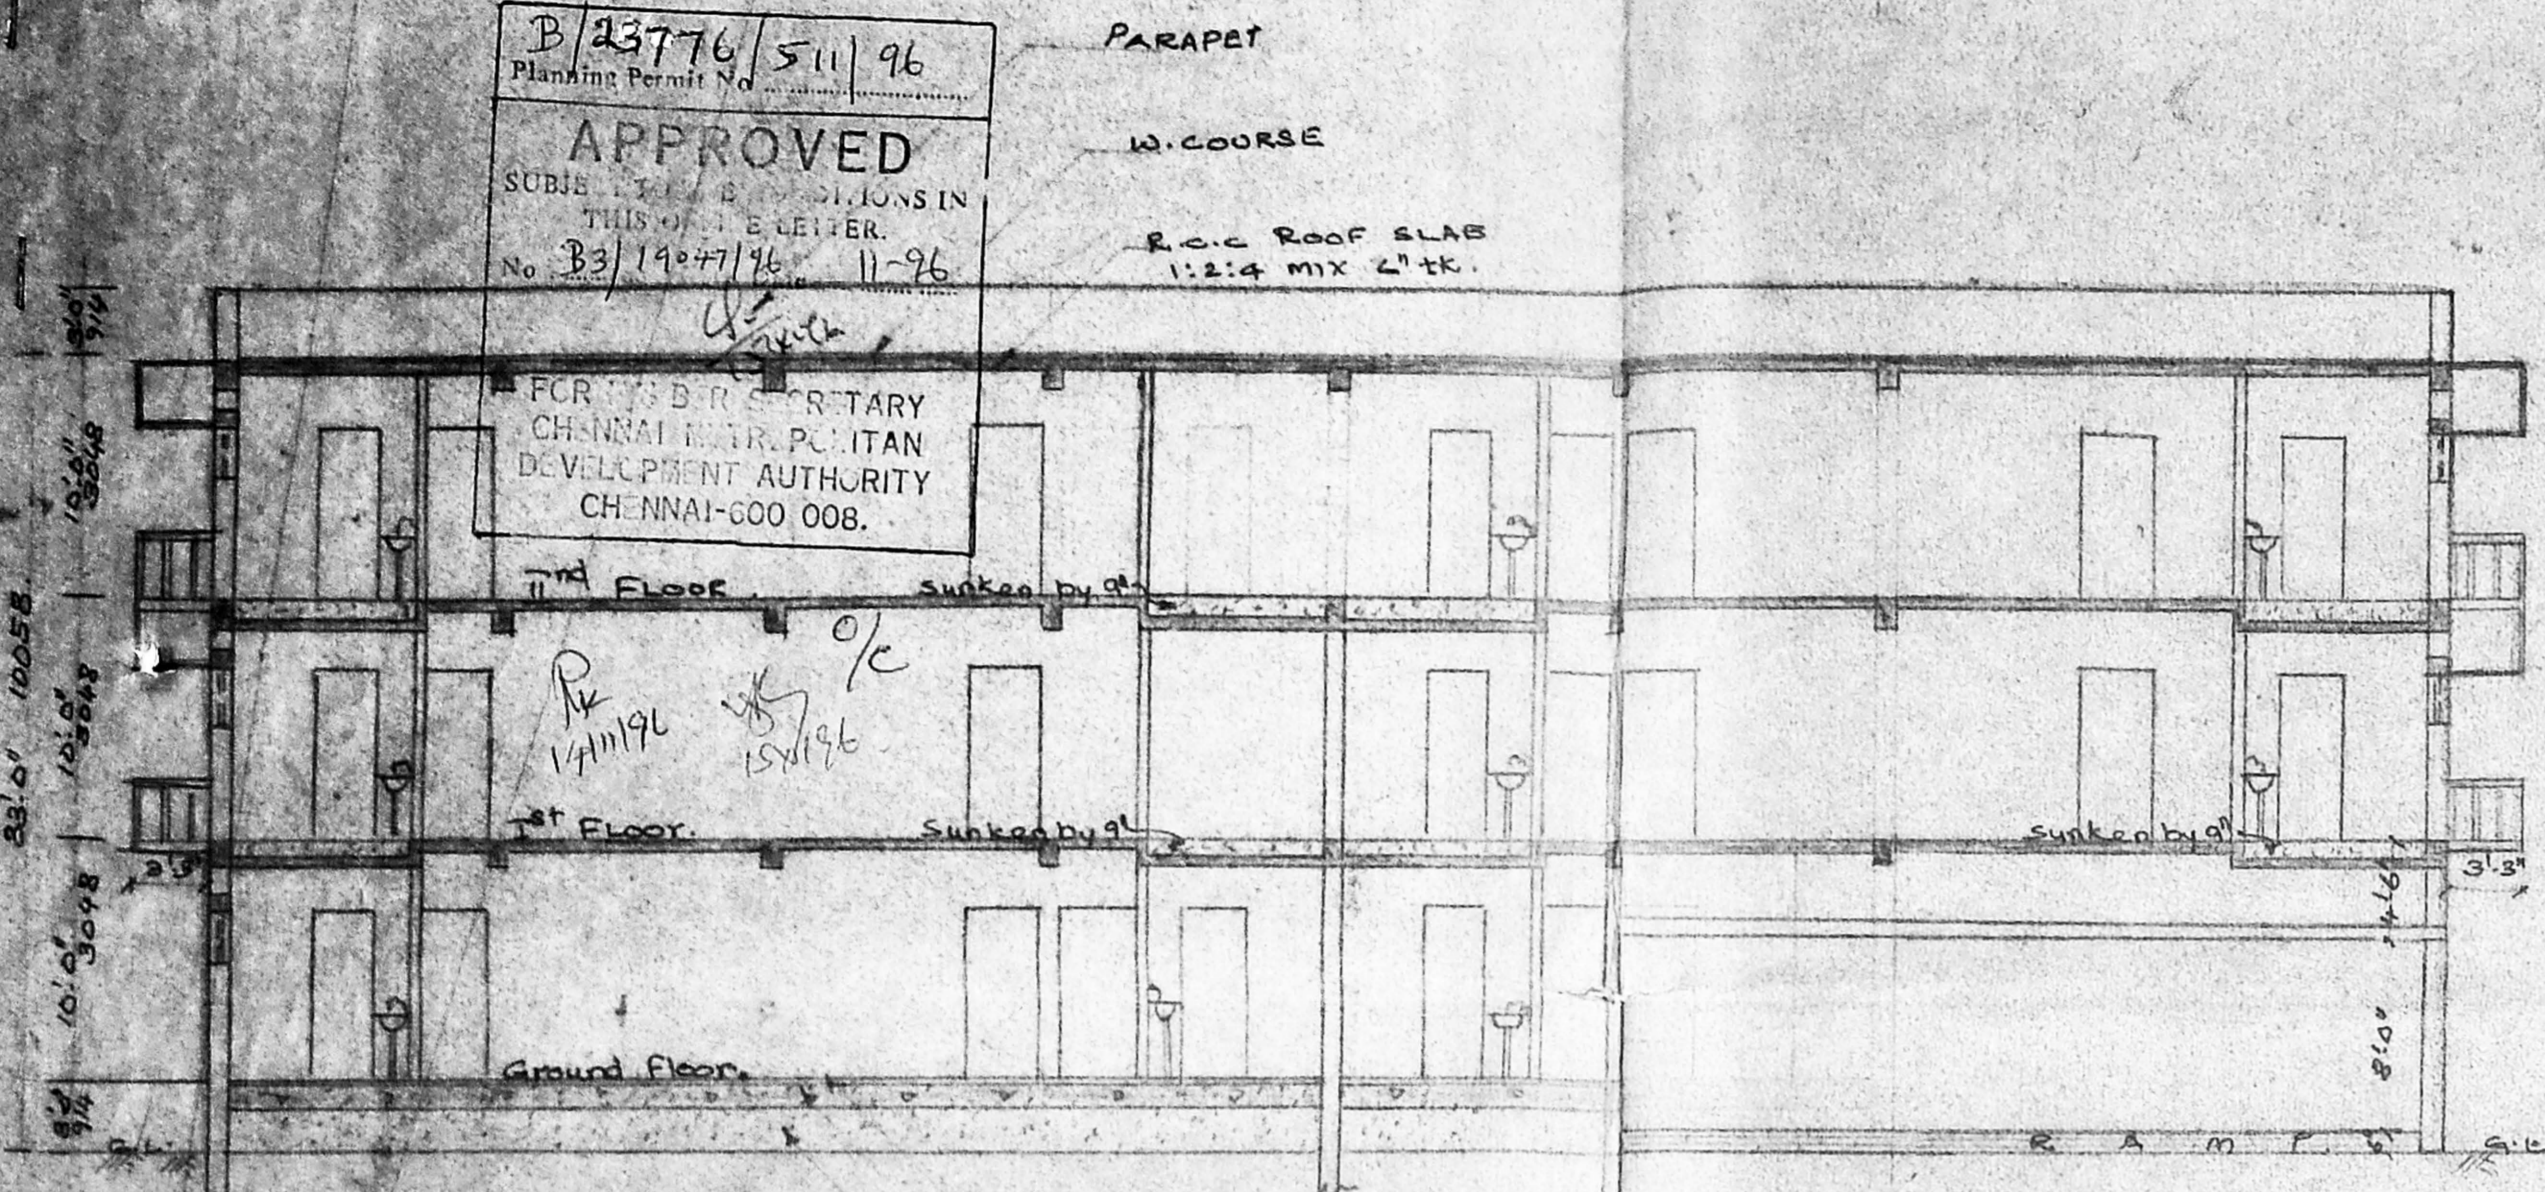 B/23776/511/96
Planning Permit No
APPROVED
SUBJE T TO IONS IN
THIS O E LETTER.
No B3/19047/96 11-96
FOR B R S CR TARY
CH NNAI M TR P LITAN
DEVELOPMENT AUTHORITY
CH NNAI-600 008.
PARAPET
W.COURSE
R.C.C ROOF SLAB
1:2:4 MIX tk.
3'.0"
914
10'.0"
3048
10'.0"
3048
33'.0" 10058
10'.0"
3048
3'.0"
914
IInd FLOOR
Sunken by 9"
O/C
14/11/96
Ist FLOOR.
Sunken by 9"
Sunken by 9"
3'.3"
3'.3"
4'6"
8'.0"
Ground Floor.
G.L.
RAMP
6"
G.L.